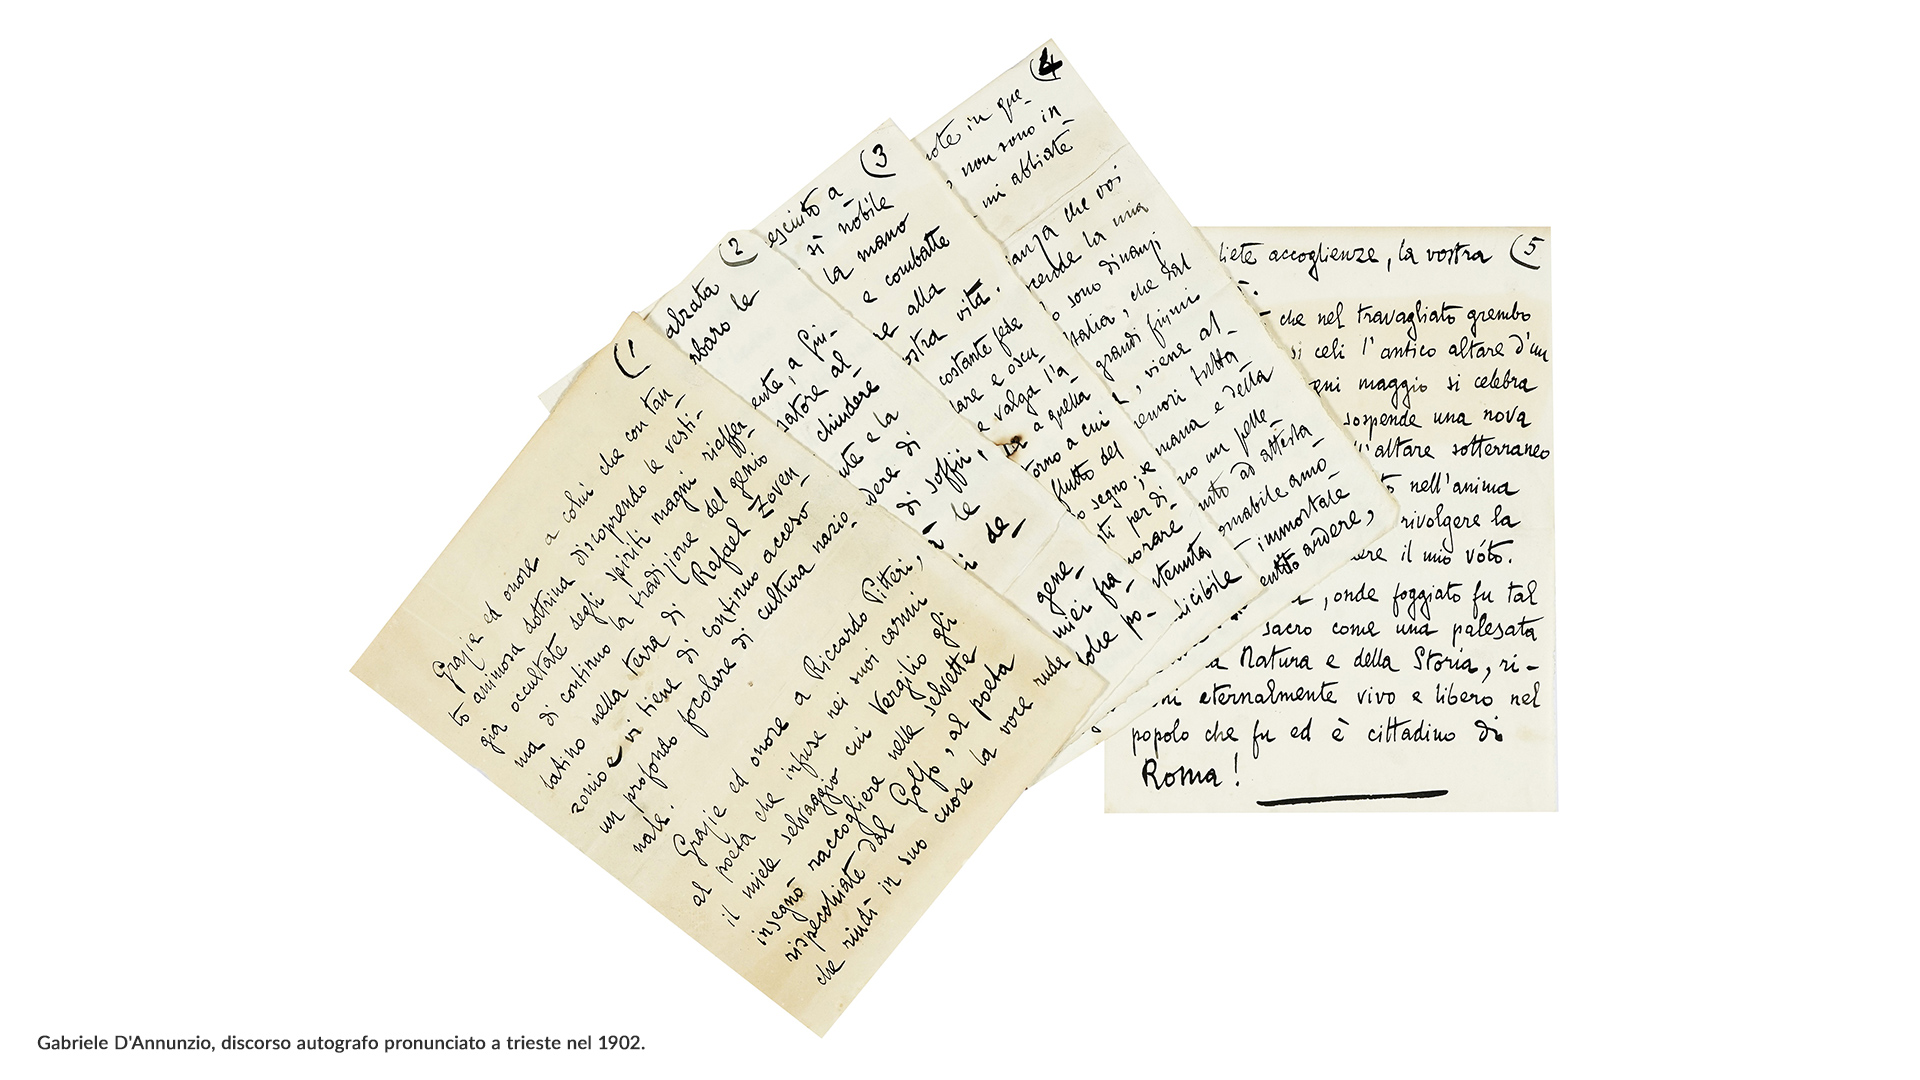 (1
Grazie ed onore a colui che con tan-
to animosa dottrina discoprendo le vesti-
gia occultate degli spiriti magni riaffer-
ma di continuo la tradizione del genio
latino nella terra di Rafael Zoven-
zonio e vi tiene di continuo acceso
un profondo focolare di cultura nazio-
nale.
Grazie ed onore a Riccardo Pitteri,
al poeta che infuse nei suoi carmi
il miele selvaggio cui Vergilio gli
insegnò raccogliere nelle selvette
rispecchiate dal Golfo, al poeta
che riudì in suo cuore la voce rude
(2
alzata
rbaro le
ente, a fin-
satore al
chiudere
nte e la
dere di
di soffii,
le
de-
gene-
miei fra-
po-
(3
esciuto a
sì nobile
la mano
e combatte
re alla
ostra vita.
costante fede
lare e oscu-
e valga l'a
a quella
torno a cui
flutto del
o segno; se
sti per di-
norare
stenuta
dicibile
(4
note in que-
, non sono in-
mi abbiate
anza che voi
cende la mia
o sono dinanzi
Italia, che dal
grandi fiumi
, viene al-
remori tutta
mana e detta
no un pelle-
nuto ad attesta-
omabile amo-
immortale
ardere,
(5
liete accoglienze, la vostra
che nel travagliato grembo
si celi l'antico altare d'un
gni maggio si celebra
sospende una nova
l'altare sotterraneo
nell'anima
rivolgere la
ere il mio vóto.
, onde foggiato fu tal
sacro come una palesata
a Natura e della Storia, ri-
ni eternalmente vivo e libero nel
popolo che fu ed è cittadino di
Roma!
Gabriele D'Annunzio, discorso autografo pronunciato a trieste nel 1902.